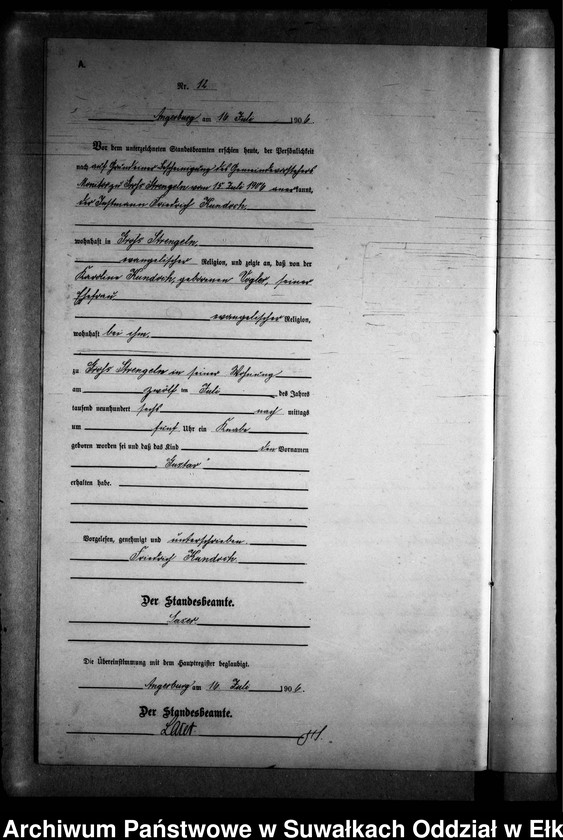 A.
Nr. 12
Angerburg am 16 Juli 1906
Vor dem unterzeichneten Standesbeamten erschien heute, der Persönlichkeit
nach auf Grund einer Bescheinigung des Gemeindevorstehers
zu Groß Strengeln vom 15. Juli 1906 anerkannt,
der Instmann Friedrich Kundoch,
wohnhaft in Groß Strengeln,
evangelischer Religion, und zeigte an, daß von der
Karoline Kundoch, geborenen Vogler, seiner
Ehefrau
evangelischer Religion,
wohnhaft bei ihm,
zu Groß Strengeln in seiner Wohnung
am zwölften Juli des Jahres
tausend neunhundert sechs nach mittags
um fünf Uhr ein Knabe
geboren worden sei und daß das Kind den Vornamen
„Gustav“
erhalten habe.
Vorgelesen, genehmigt und unterschrieben
Friedrich Kundoch
Der Standesbeamte.
Die Übereinstimmung mit dem Hauptregister beglaubigt.
Angerburg am 16 Juli 1906.
Der Standesbeamte.
Archiwum Państwowe w Suwałkach Oddział w Ełk